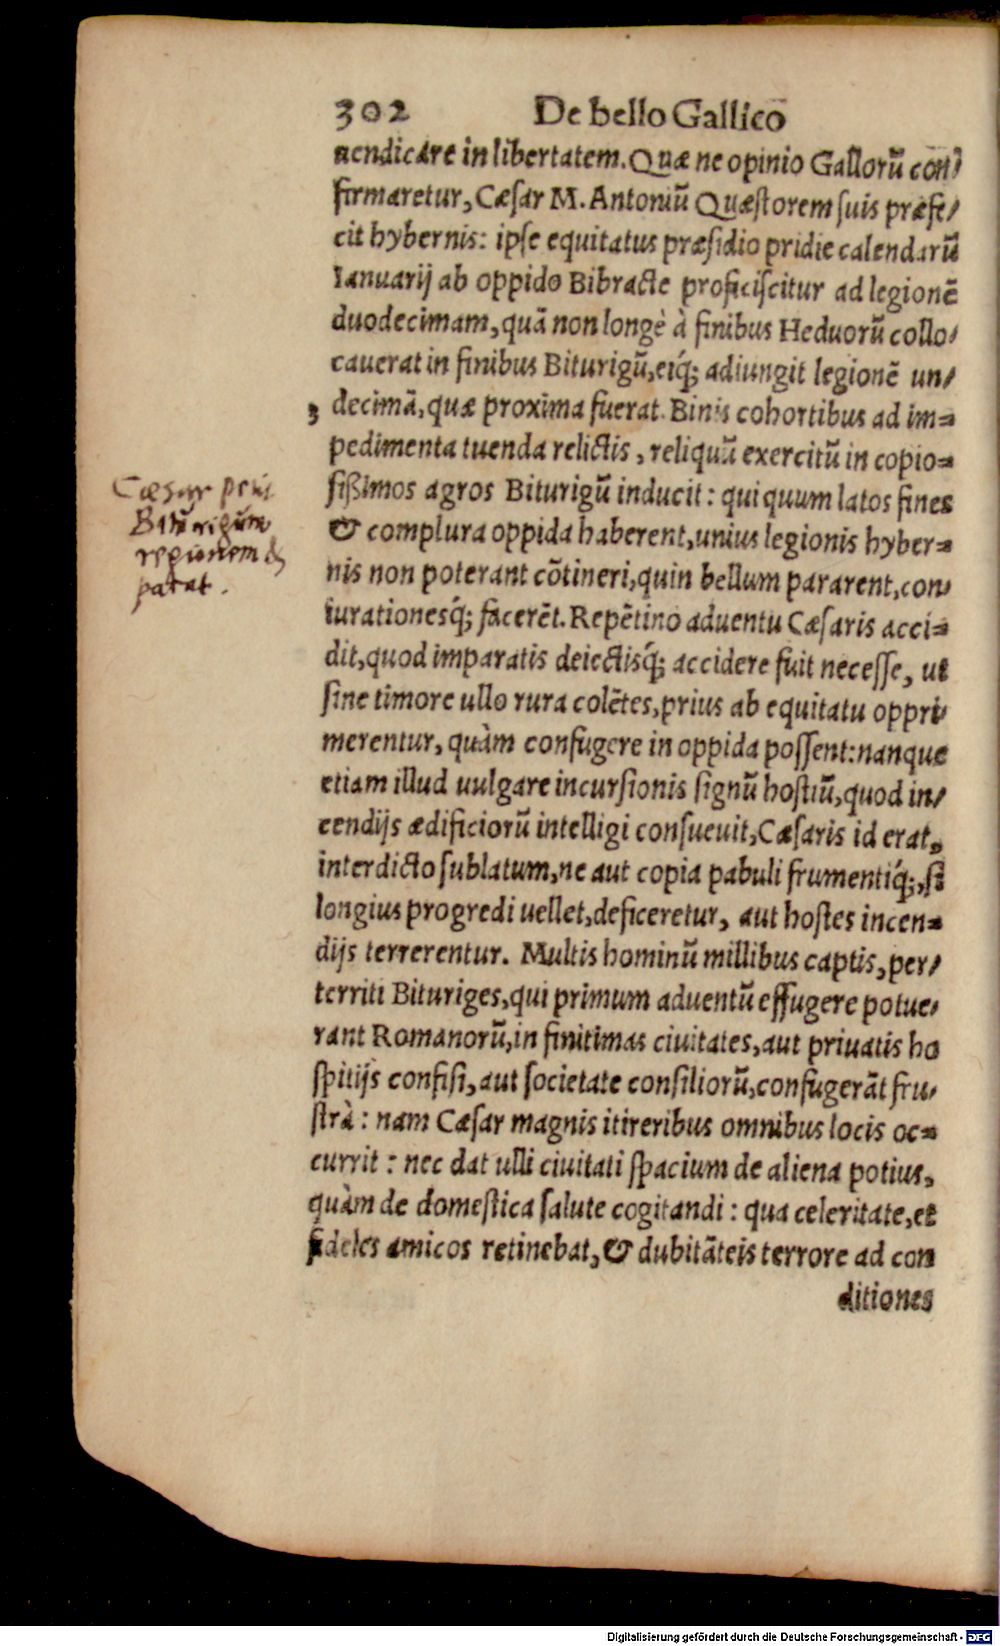 302 De bello Gallico
uendicare in libertatem. Quæ ne opinio Gallorũ con⸗
firmaretur, Cæſar M. Antoniũ Quæſtorem ſuis præfe⸗
cit hybernis: ipſe equitatus præſidio pridie calendarũ
Ianuarij ab oppido Bibracte proficiſcitur ad legionẽ
duodecimam, quã non longè à finibus Heduorũ collo⸗
cauerat in finibus Biturigũ, eiq́; adiungit legionẽ un⸗
3 decimã, quæ proxima fuerat. Binis cohortibus ad im⸗
pedimenta tuenda relictis, reliquũ exercitũ in copio⸗
ſißimos agros Biturigũ inducit: qui quum latos fines
& complura oppida haberent, unius legionis hyber⸗
nis non poterant cõtineri, quin bellum pararent, con⸗
iurationesq́; facerẽt. Repẽtino aduentu Cæſaris acci⸗
dit, quod imparatis deiectisq́; accidere fuit neceſſe, ut
ſine timore ullo rura colẽtes, prius ab equitatu oppri⸗
merentur, quàm confugere in oppida poſſent: nanque
etiam illud uulgare incurſionis ſignũ hoſtiũ, quod in⸗
cendijs ædificiorũ intelligi conſueuit, Cæſaris id erat,
interdicto ſublatum, ne aut copia pabuli frumentiq́;, ſi
longius progredi uellet, deficeretur, aut hoſtes incen⸗
dijs terrerentur. Multis hominũ millibus captis, per⸗
territi Bituriges, qui primum aduentũ effugere potue⸗
rant Romanorũ, in finitimas ciuitates, aut priuatis ho
ſpitijs confiſi, aut ſocietate conſiliorũ, confugerãt fru⸗
ſtrà: nam Cæſar magnis itireribus omnibus locis oc⸗
currit: nec dat ulli ciuitati ſpacium de aliena potius,
quàm de domeſtica ſalute cogitandi: qua celeritate, et
fideles amicos retinebat, & dubitãteis terrore ad con
ditiones
Cæsar petit
Biturigum
regionem &
.
Digitalisierung gefördert durch die Deutsche Forschungsgemeinschaft - DFG